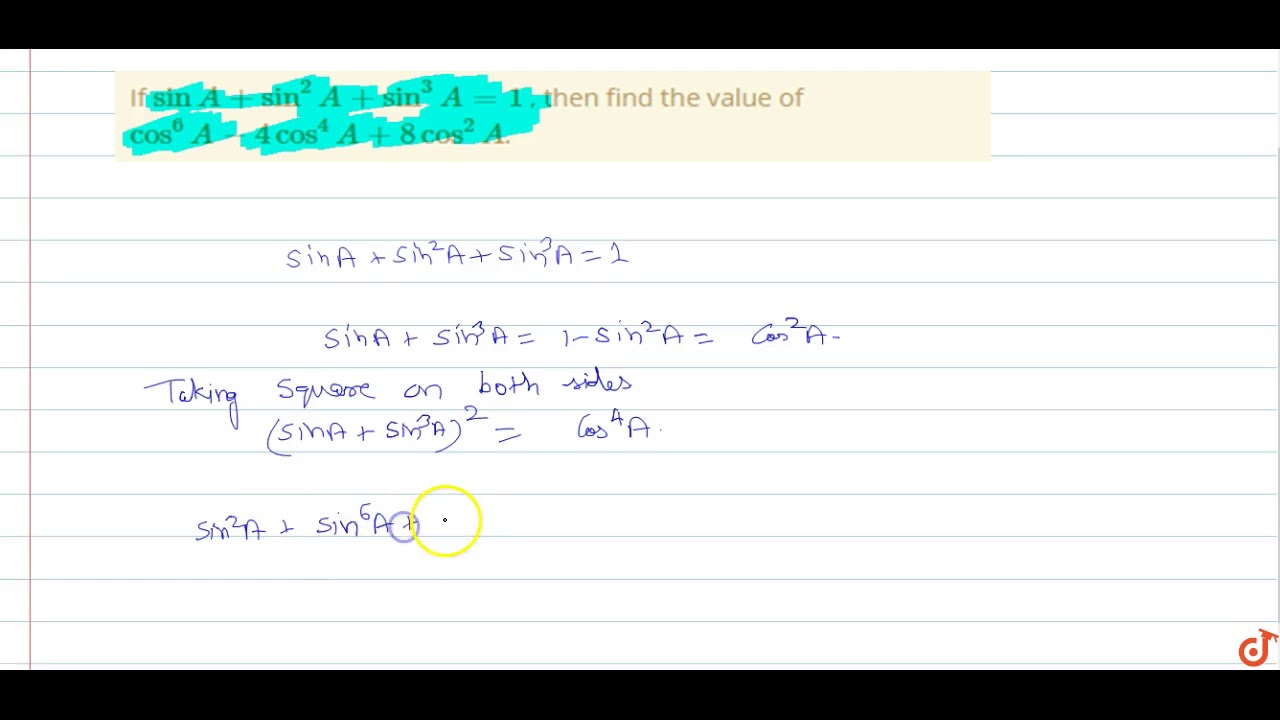 If sin A + sin² A + sin³ A = 1, then find the value of
cos⁶ A − 4 cos⁴ A + 8 cos² A.
sinA + sin²A + sin³A = 1
sinA + sin³A = 1 - sin²A = cos²A.
Taking square on both sides
(sinA + sin³A)² = cos⁴A.
sin²A + sin⁶A +